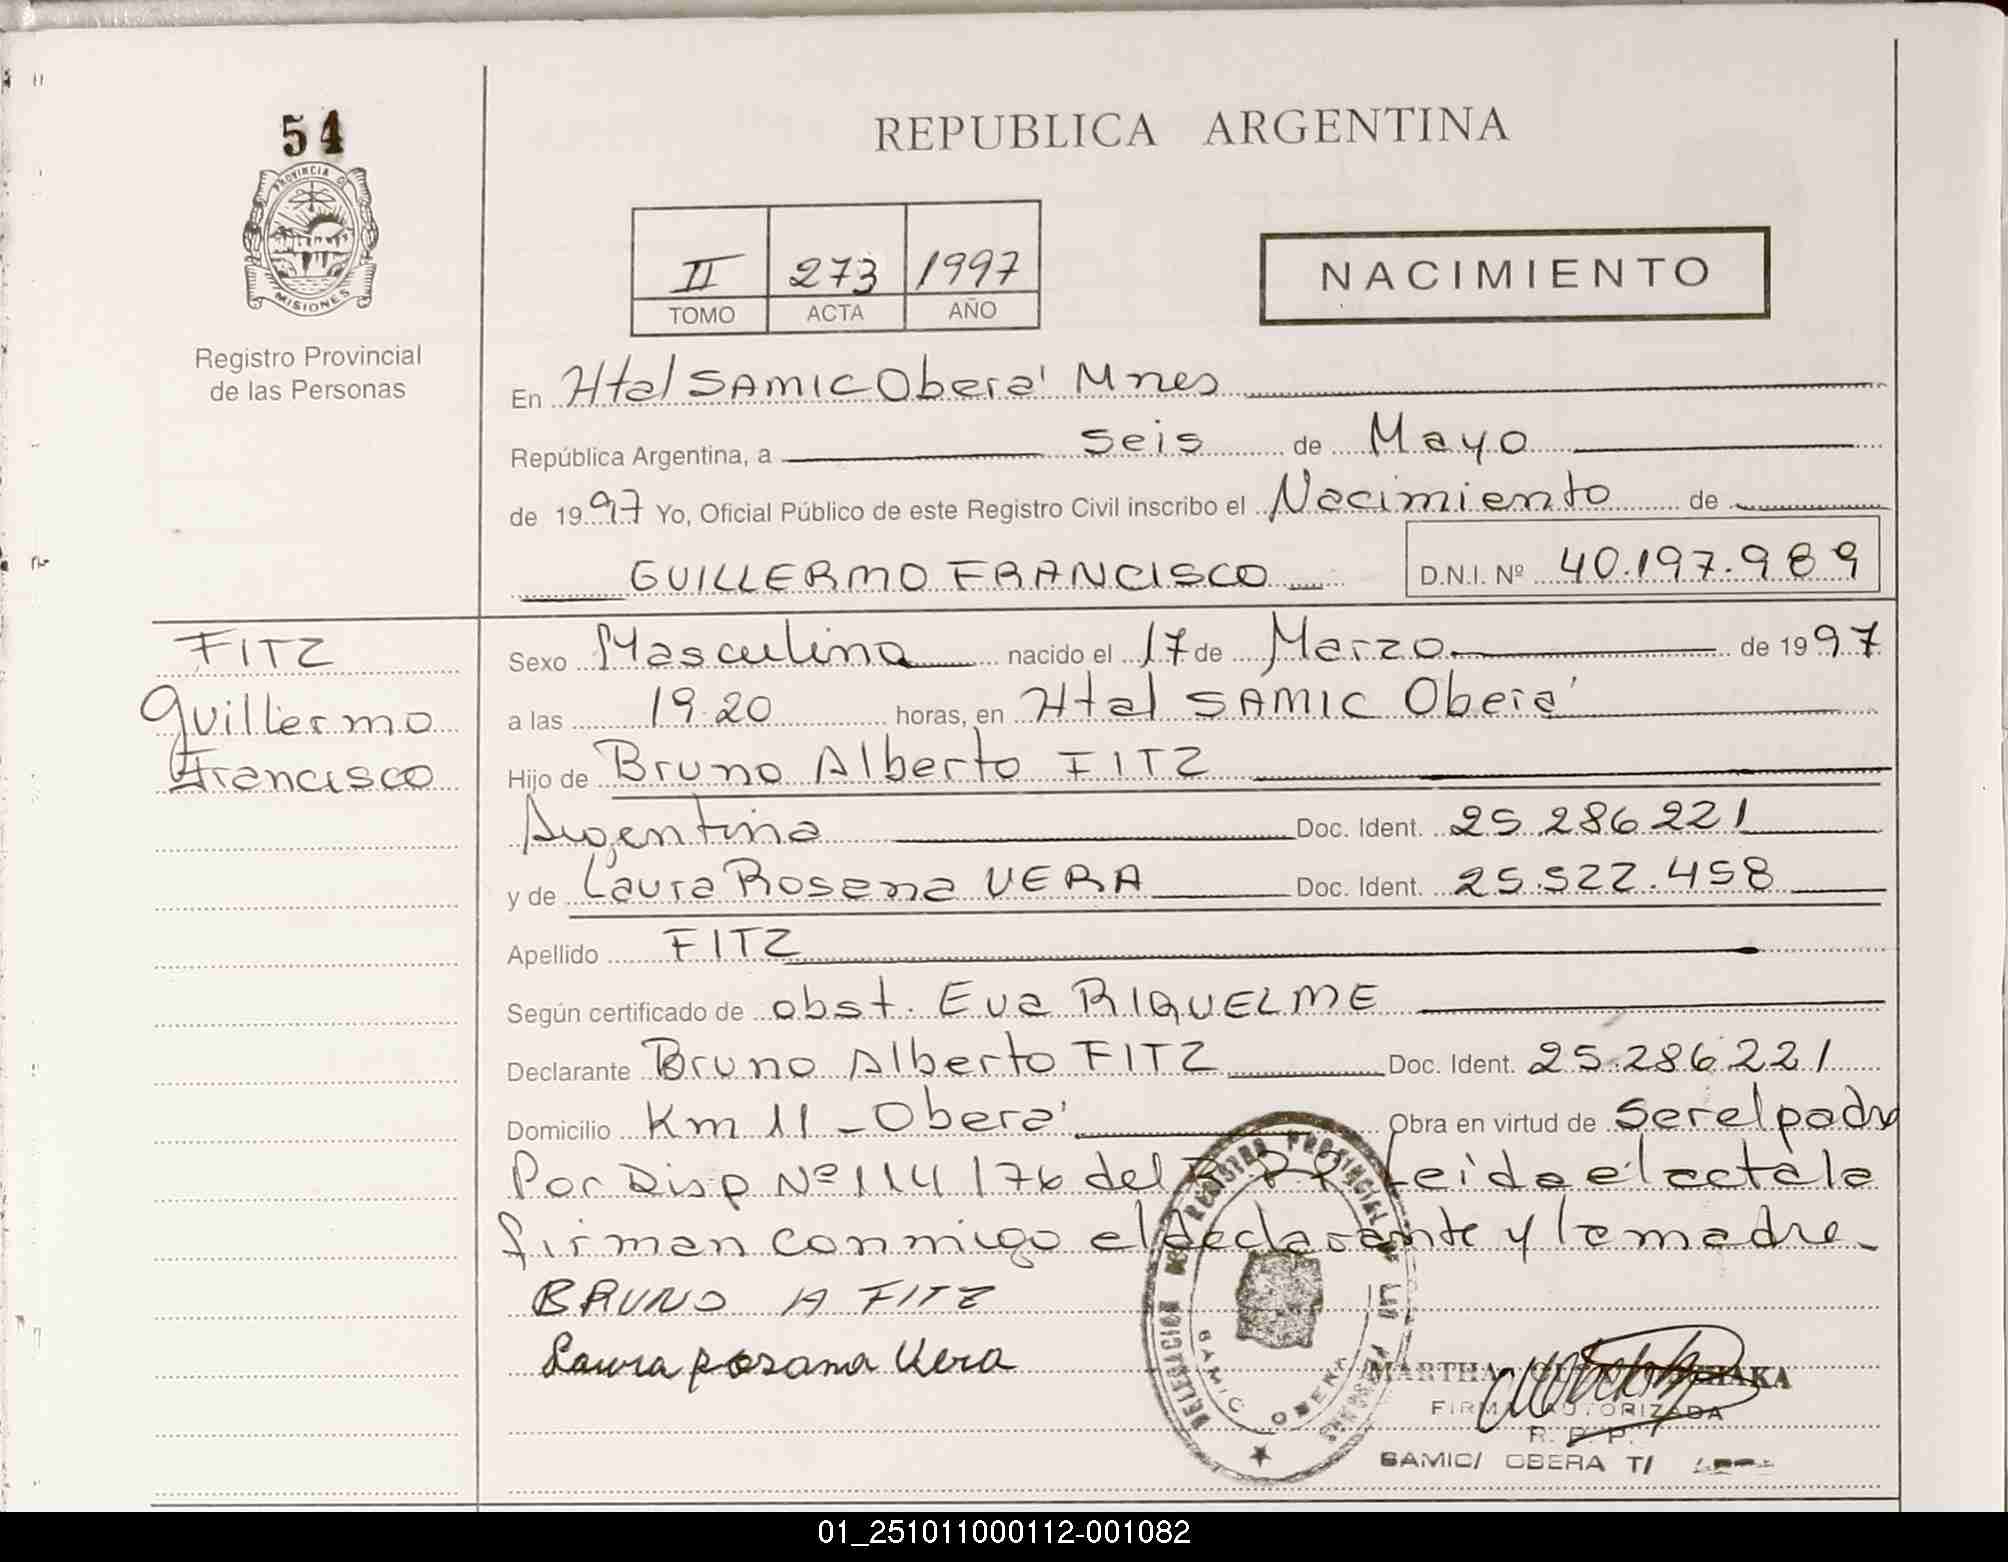 54
PROVINCIA DE
MISIONES
Registro Provincial
de las Personas
REPUBLICA ARGENTINA
II 273 1997
TOMO ACTA AÑO
NACIMIENTO
En Htal SAMIC Oberá Mnes
República Argentina, a seis de Mayo
de 1997 Yo, Oficial Público de este Registro Civil inscribo el Nacimiento de
GUILLERMO FRANCISCO D.N.I. Nº 40.197.989
FITZ
Guillermo
Francisco
Sexo Masculino nacido el 17 de Marzo de 1997
a las 19.20 horas, en Htal SAMIC Oberá
Hijo de Bruno Alberto FITZ
Argentina Doc. Ident. 25.286.221
y de Laura Rosana VERA Doc. Ident. 25.522.458
Apellido FITZ
Según certificado de obst. Eva RIQUELME
Declarante Bruno Alberto FITZ Doc. Ident. 25.286.221
Domicilio Km 11 - Oberá Obra en virtud de ser el padre
Por Disp Nº 114/76 del R.P.P. Leida el acta la
firman conmigo el declarante y la madre.
BRUNO A FITZ
Laura Rosana Vera
DELEGACION REGISTRO PROVINCIAL DE LAS PERSONAS
SAMIC OBERA
MARTHA
FIRMA AUTORIZADA
R. P. P.
SAMIC/ OBERA T/
01_251011000112-001082